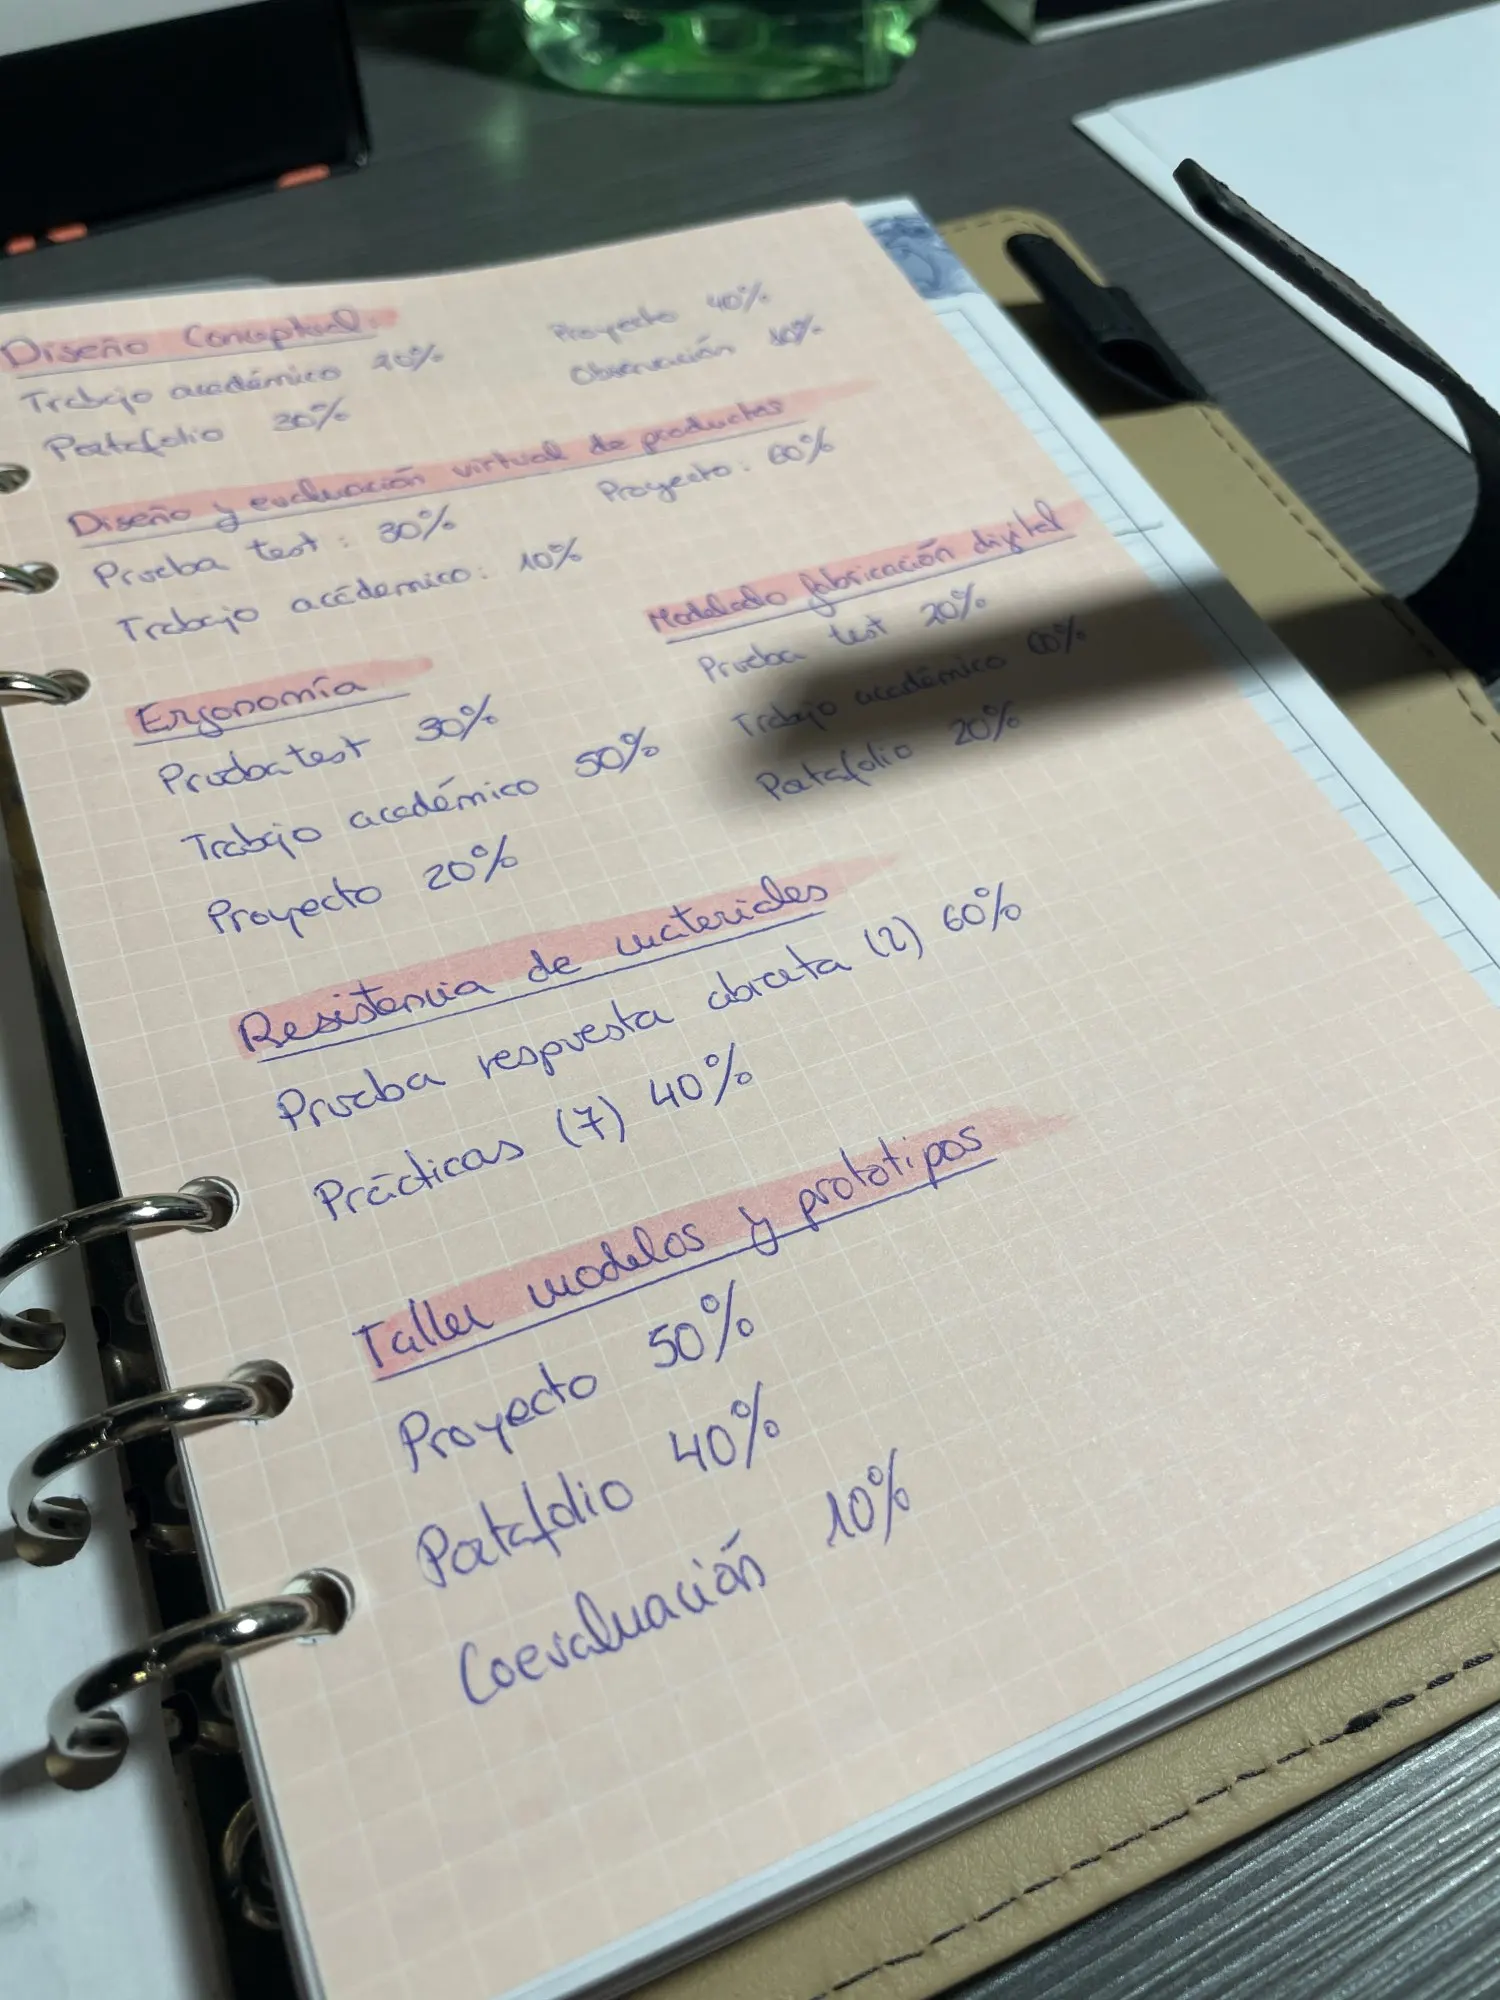 Diseño Conceptual:
Trabajo académico 20%
Portafolio 30%
Proyecto 40%
Observación 10%
Diseño y evaluación virtual de productos
Prueba test: 30%
Trabajo académico: 10%
Proyecto: 60%
Ergonomía
Prueba test 30%
Trabajo académico 50%
Proyecto 20%
Modelado fabricación digital
Prueba test 20%
Trabajo académico 60%
Portafolio 20%
Resistencia de materiales
Prueba respuesta abierta (2) 60%
Prácticas (7) 40%
Taller modelos y prototipos
Proyecto 50%
Portafolio 40%
Coevaluación 10%